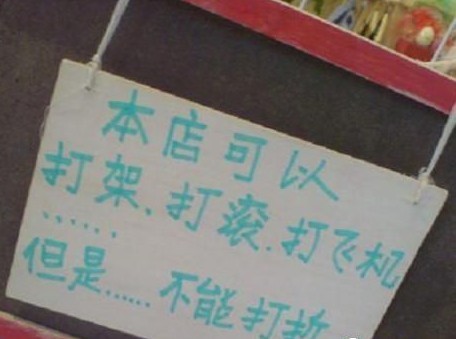 本店可以
打架、打滚、打飞机
……
但是……不能打折